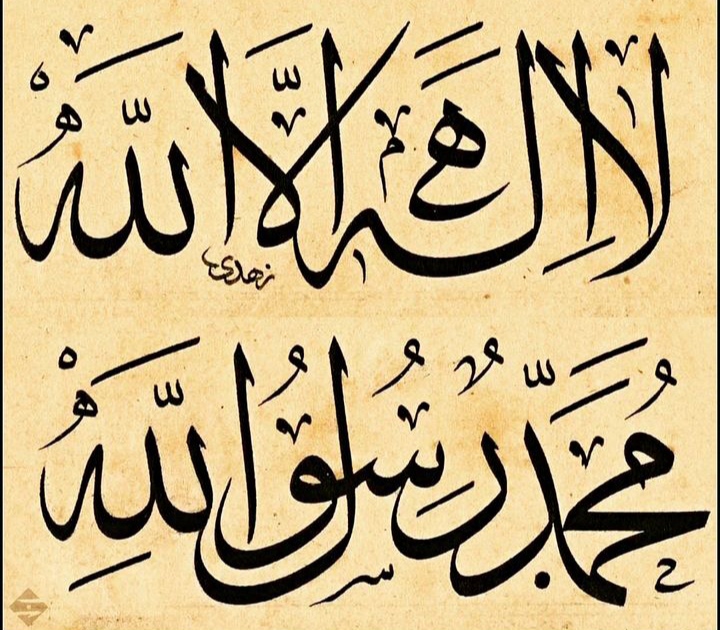 لَا إِلٰهَ إِلَّا اللّٰهُ
زهدي
مُحَمَّدٌ رَسُولُ اللّٰهِ